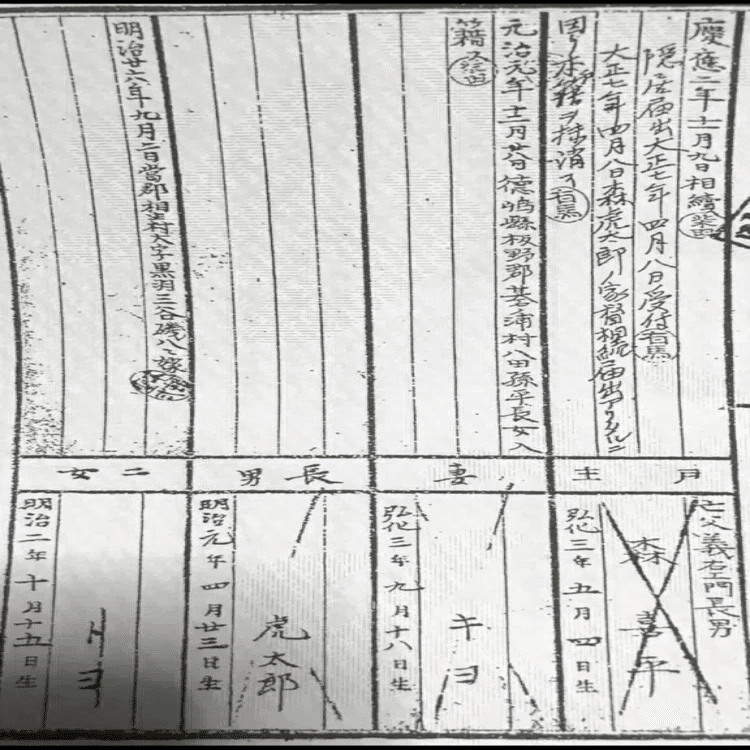 慶應二年十二月九日相續
隠居届出大正七年四月八日受付有馬
大正七年四月八日森虎太郎ノ家督相続届出アリタルニ
因リ本籍ヲ抹消ス有馬
元治元年十二月廿八日德嶋縣板野郡基浦村八田孫平長女入
籍
明治廿六年九月二日當郡相生村大字黒羽三谷磯八ヘ嫁
戸主
妻
長男
二女
亡父義右エ門長男
森喜平
弘化三年五月四日生
キヨ
弘化三年九月十八日生
虎太郎
明治元年四月廿三日生
トヨ
明治二年十月十五日生